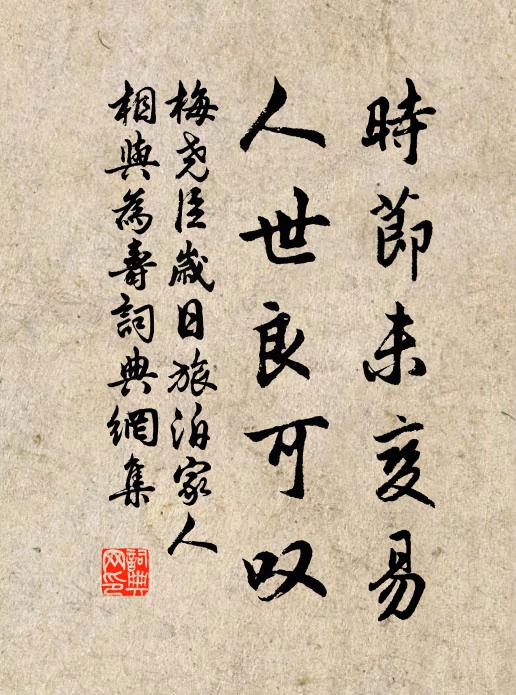 時節未变易
人世良可叹
梅尧臣歲日旅泊家人
相與為壽詞典網集
詞典
网印